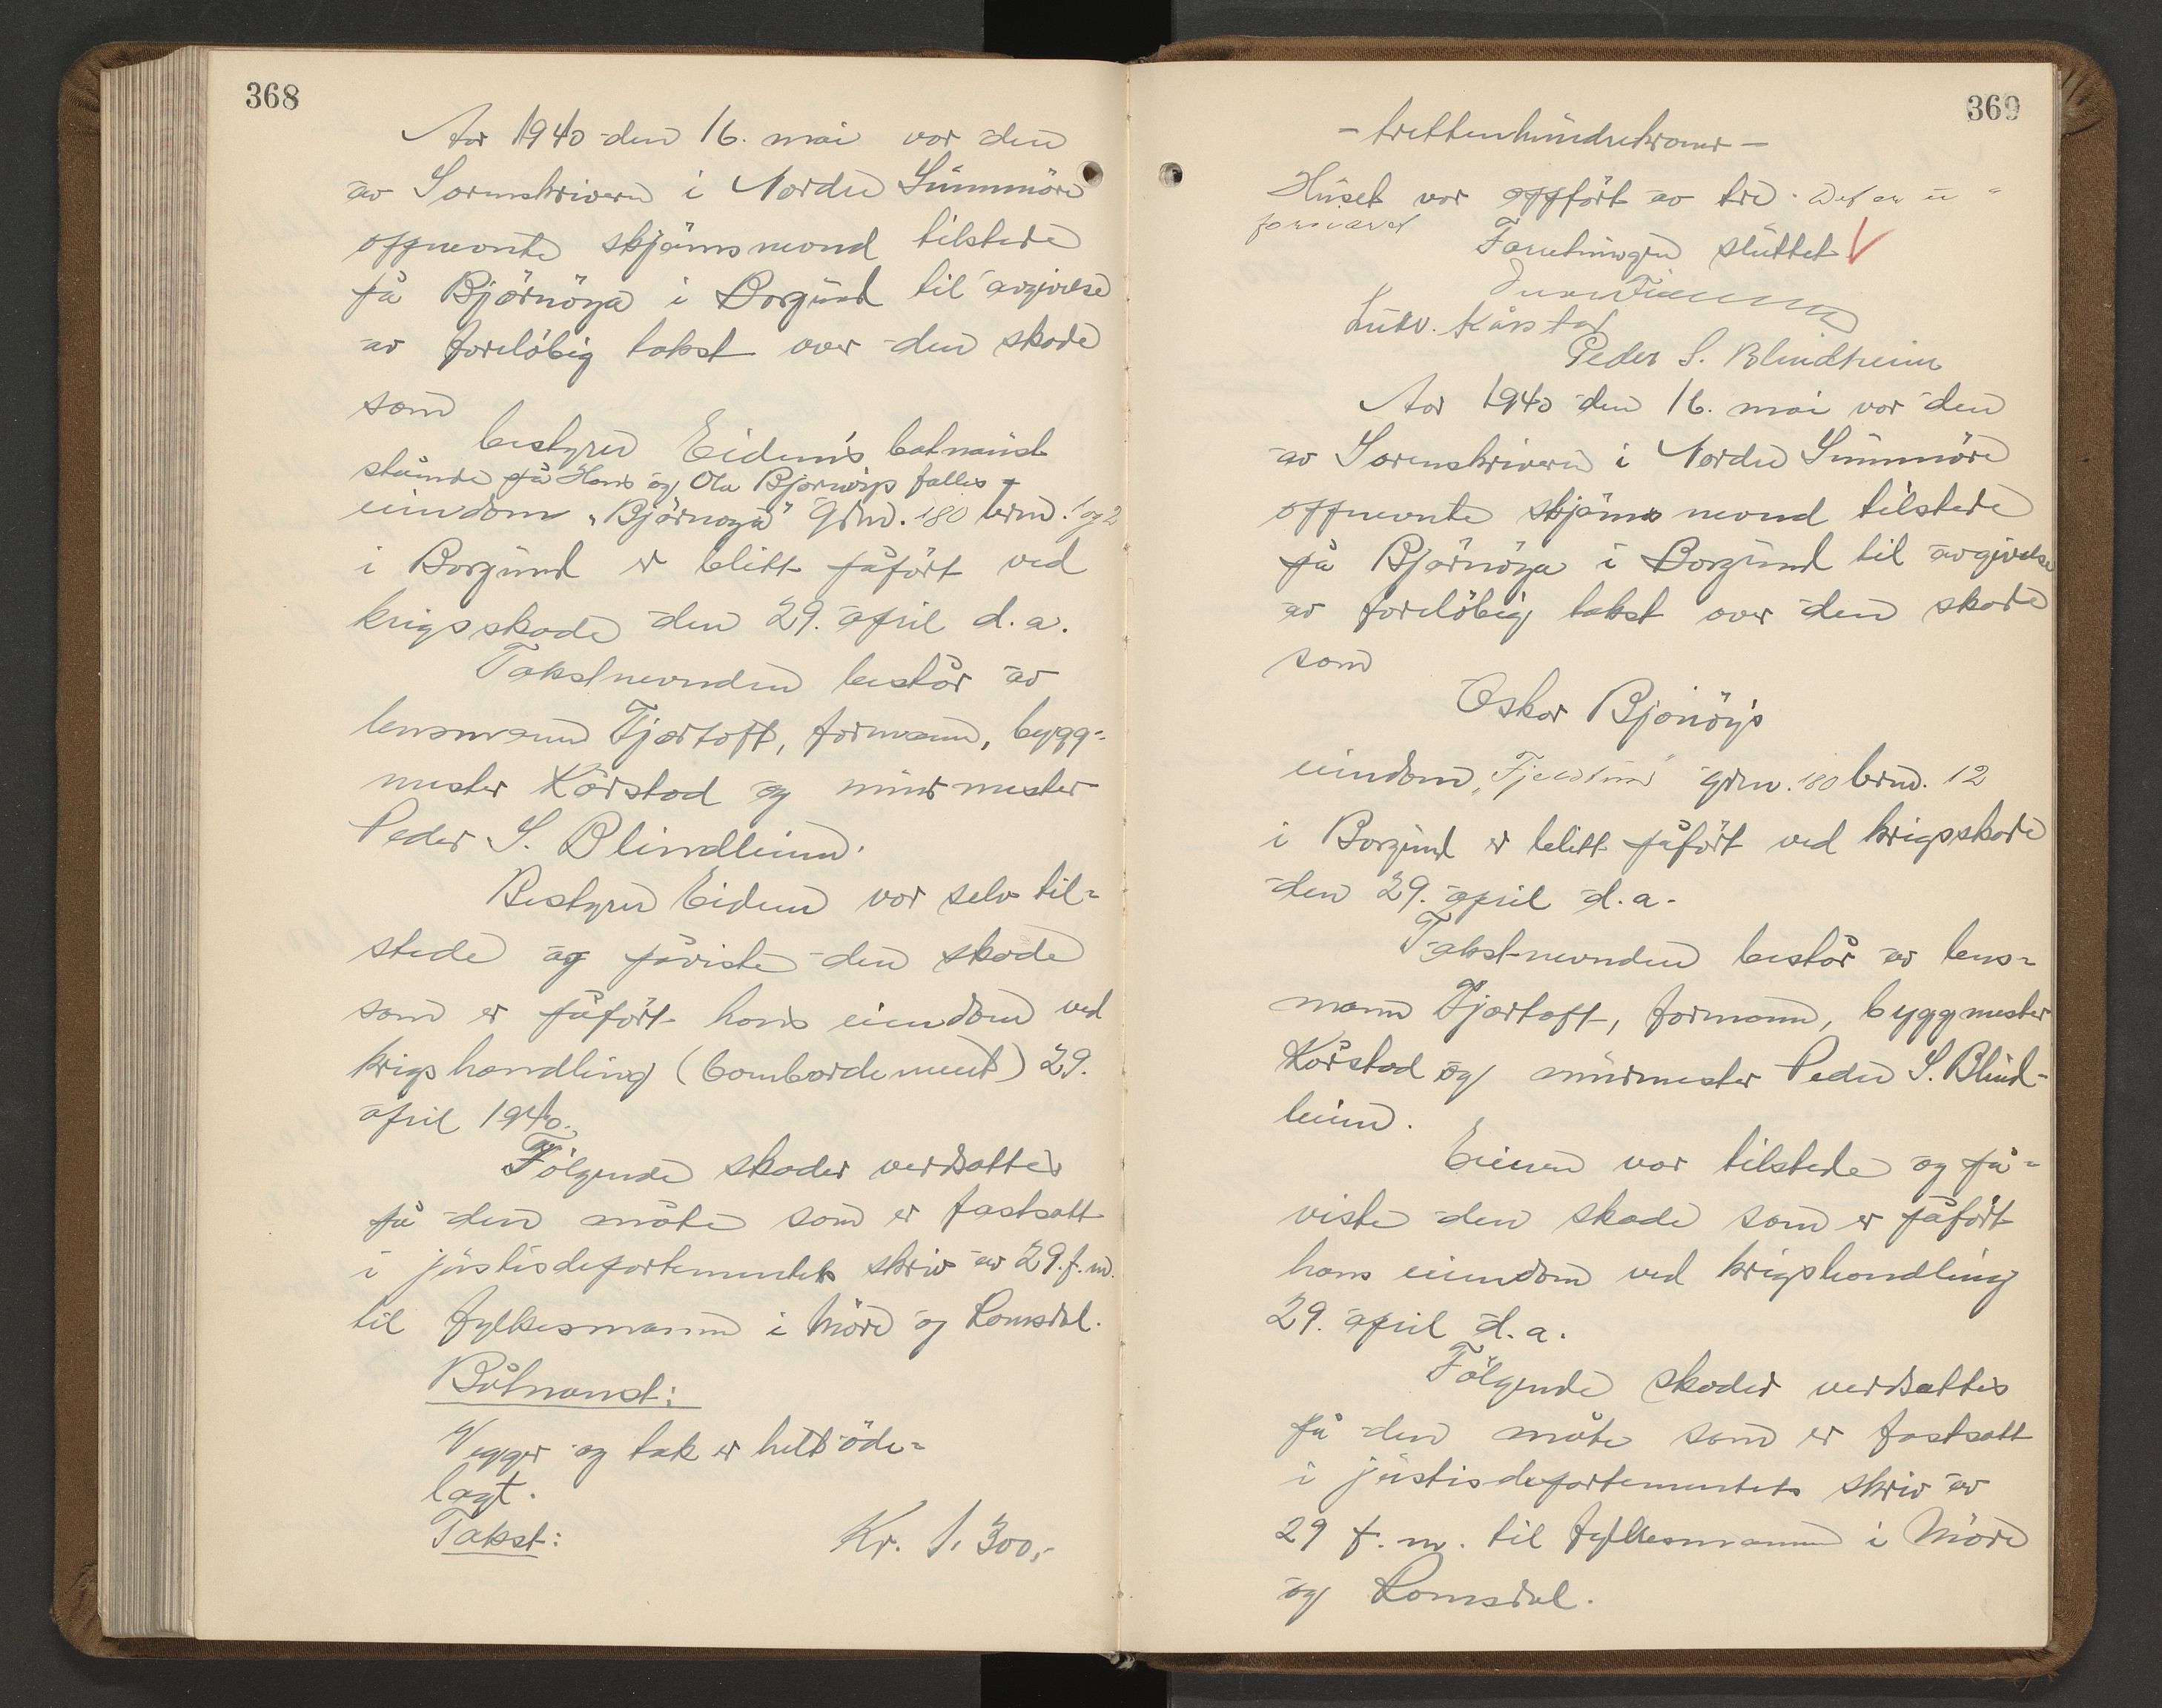 368
Aar 1940 den 16. mai var den
av Sorenskriveren i Nordre Sunnmöre
oppnevnte skjönsnevnd tilstede
på Björnöya i Borgund til avgivelse
av foreløbig takst over den skade
som
bestyrer Eidem's båtnaust
stående på Hans og Ola Bjørnöys felles
eiendom „Björnöya" grnr. 180 brnr. 1 og 2
i Borgund er blitt påfört ved
krigsskade den 29. april d.a.
Takstnevnden består av
lensmann Fjørtoft, formann, bygg-
mester Kårstad og murmester
Peder S. Blindheim.
Bestyrer Eidem var selv til-
stede og påviste den skade
som er påfört hans eiendom ved
krigshandling (bombardement) 29.
april 1940.
Fölgende skader verdsattes
på den måte som er fastsatt
i justisdepartementets skriv av 29. f.m.
til fylkesmannen i Möre og Romsdal.
Båtnaust:
Vegger og tak er helt öde-
lagt.
Takst: Kr. 1.300,-
369
- trettenhundrekroner -
Huset var oppfört av tre. Det er u-
forsvaret
Forretningen sluttet
Ludv. Kårstad
Peder S. Blindheim
Aar 1940 den 16. mai var den
av Sorenskriveren i Nordre Sunnmöre
oppnevnte skjönsnevnd tilstede
på Björnöya i Borgund til avgivelse
av forelöbig takst over den skade
som
Oskar Bjönöy's
eiendom grnr. 180 brnr. 12
i Borgund er blitt påfört ved krigsskade
den 29. april d.a.
Takstnevnden består av lens-
mann Fjørtoft, formann, byggmester
Kårstad og murmester Peder S. Blind-
heim.
Eieren var tilstede og på-
viste den skade som er påfört
hans eiendom ved krigshandling
29. april d.a.
Fölgende skader verdsattes
på den måte som er fastsatt
i justisdepartementets skriv av
29 f.m. til fylkesmannen i Möre
og Romsdal.